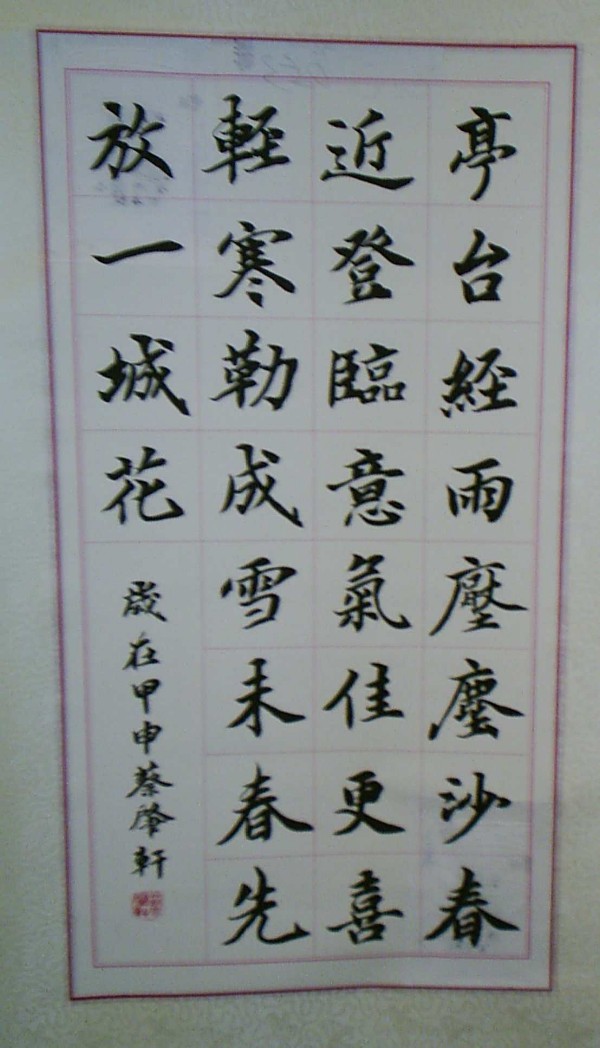 亭台經雨壓塵沙春
近登臨意氣佳更喜
輕寒勒成雪未春先
放一城花
歲在甲申蔡肇軒